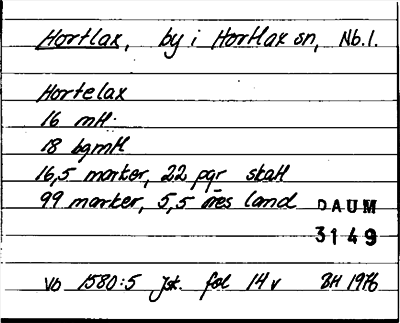 Hortlax, by i Hortlax sn, Nb.l.
Hortelax
16 mtl.
18 bgmtl
16,5 marker, 22 pgr skatt
99 marker, 5,5 öres land
DAUM
3149
Vb 1580:5 Jsk. fol 14v BH 1976